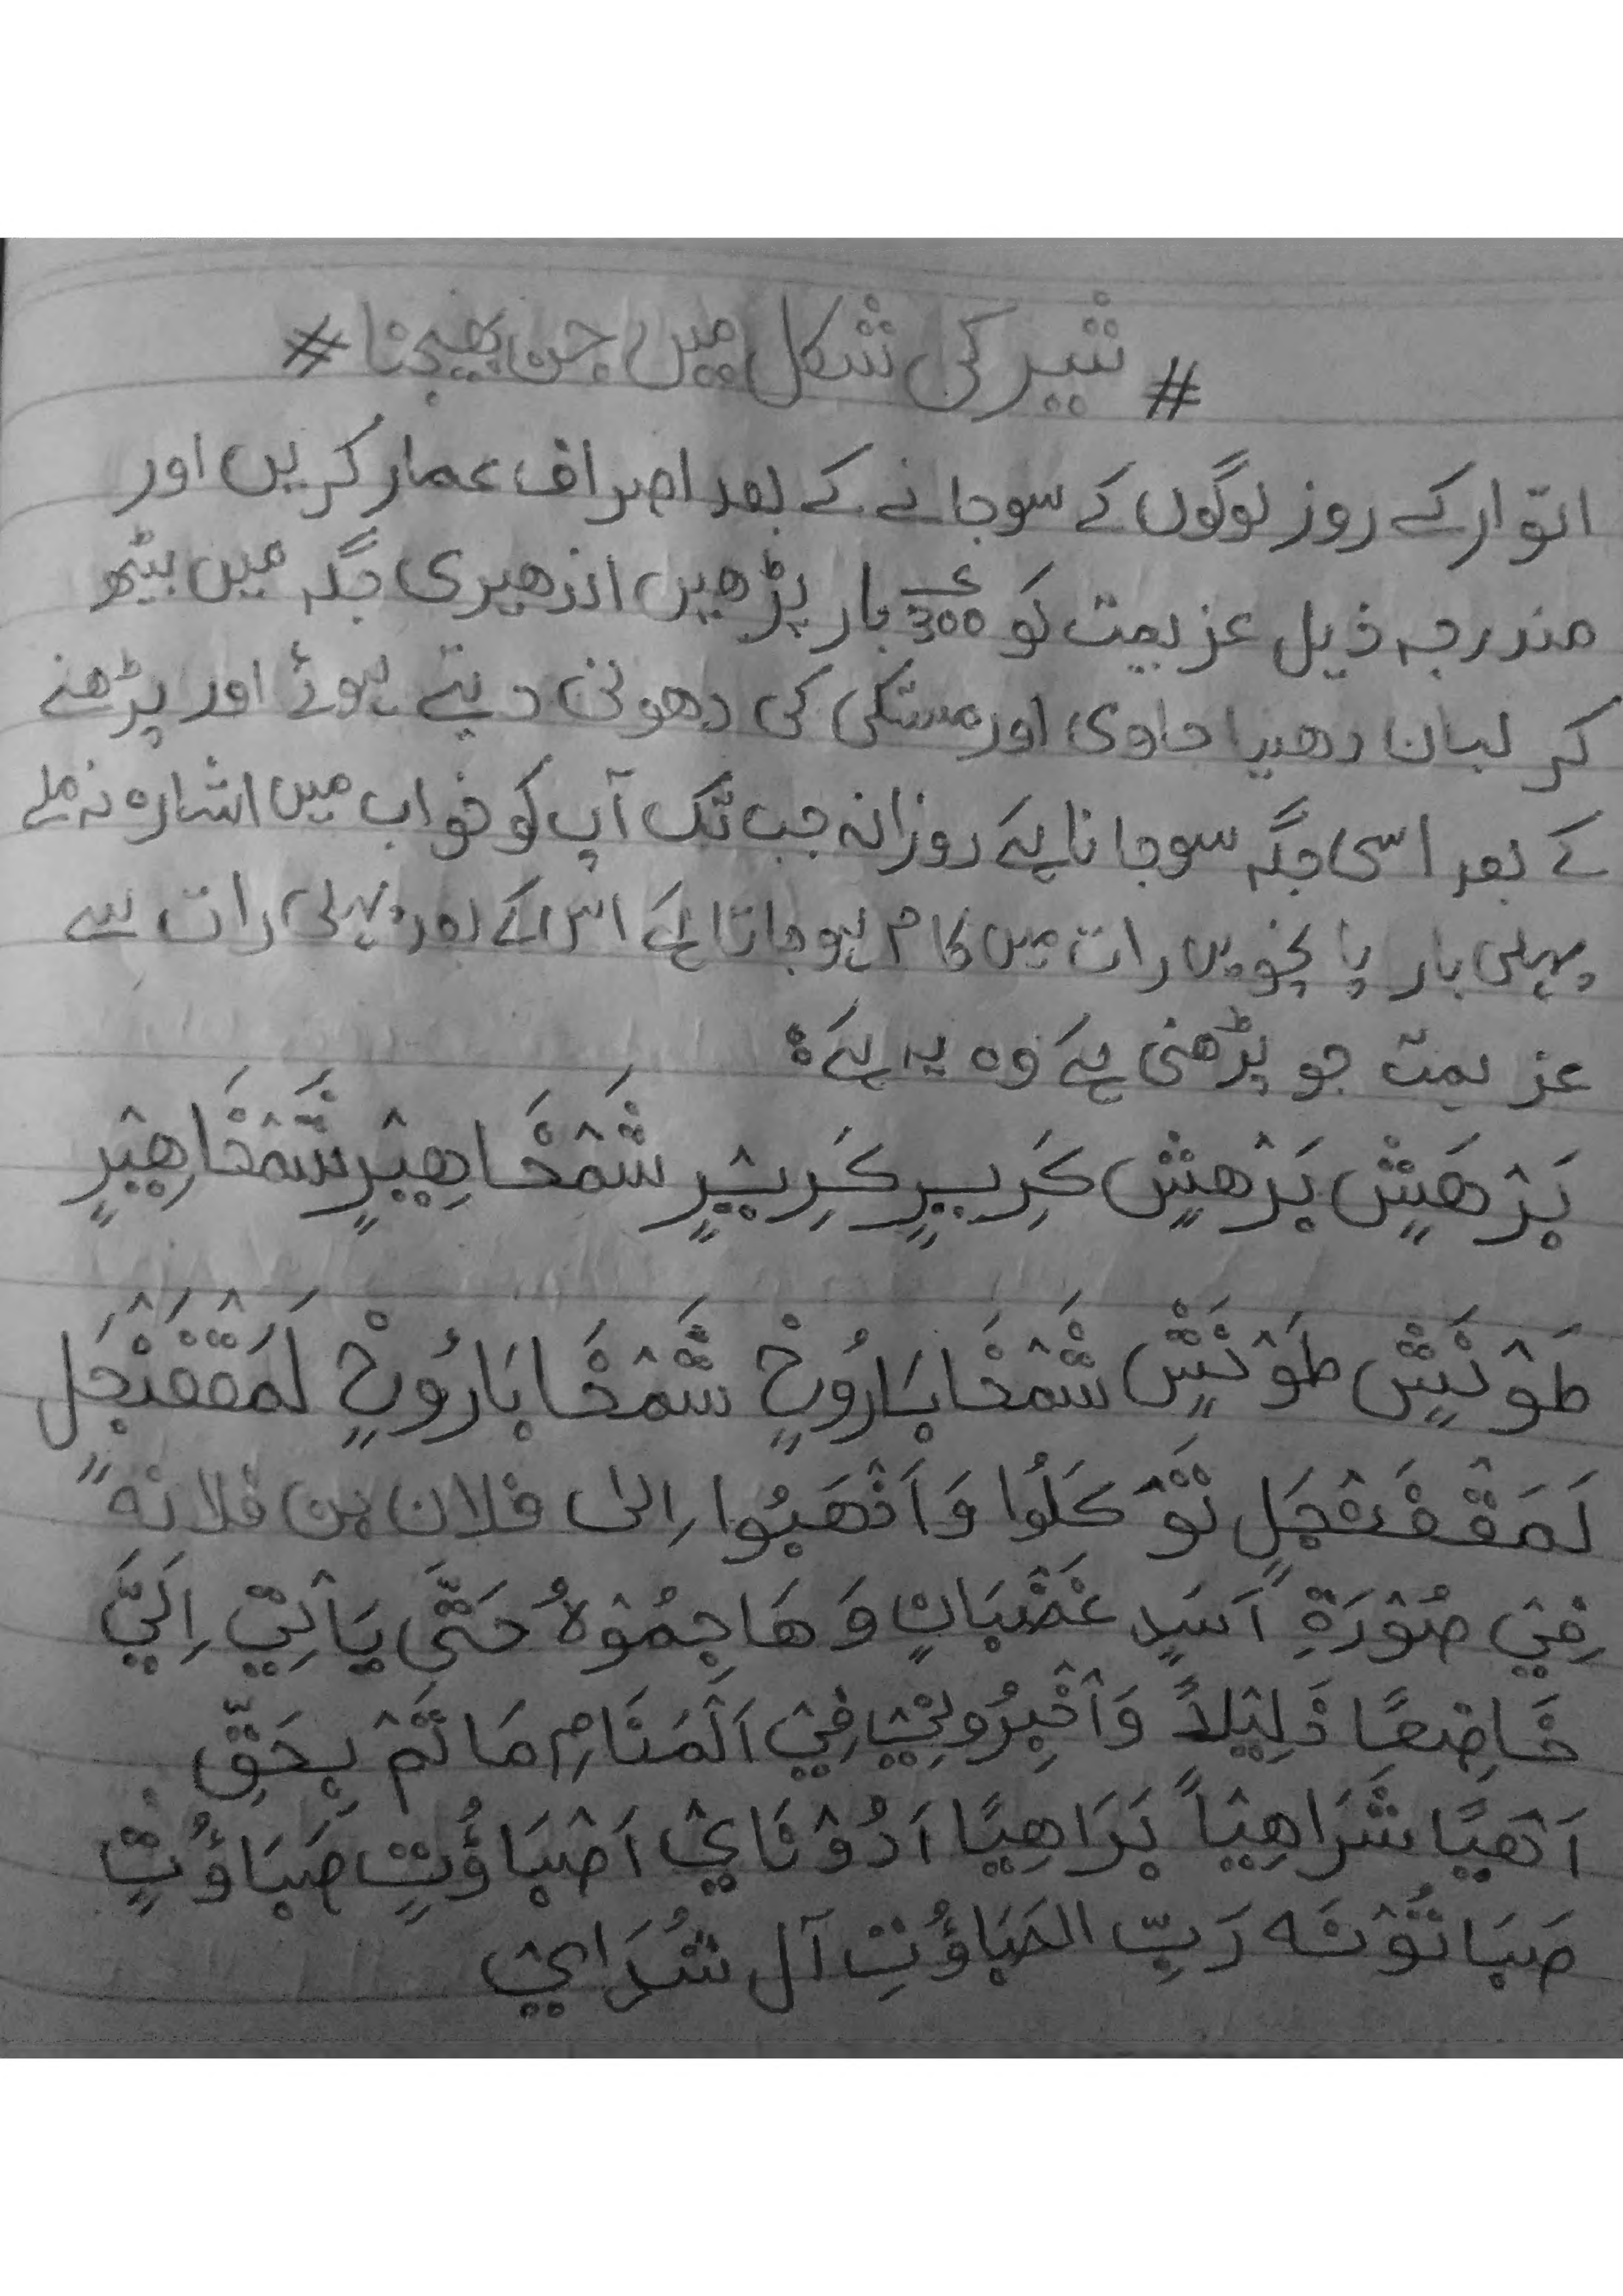 # شیر کی شکل میں جن بھیجنا #
اتوار کے روز لوگوں کے سوجانے کے بعد اصراف عمار کریں اور
مندرجہ ذیل عزیمت کو 300 بار پڑھیں اندھیری جگہ میں بیٹھ
کر لبان دھیا جاوی اور مستکی کی دھونی دیتے ہوئے اور پڑھنے
کے بعد اسی جگہ سوجانا ہے روزانہ جب تک آپ کو خواب میں اشارہ نہ ملے
پہلی بار پانچویں رات میں کام ہوجاتا ہے اس کے بعد پہلی رات سے
عزیمت جو پڑھنی ہے وہ یہ ہے:
بَرْهَیْشٍ بَرْهَیْشٍ كَرِیرٍ كَرِیرٍ شَمْخَاهِیْرٍ شَمْخَاهِیْرٍ
طَوْنَیْشٍ طَوْنَیْشٍ شَمْخَابَارُوخٍ شَمْخَابَارُوخٍ لَمَقْفَنْجَلٍ
لَمَقْفَنْجَلٍ تَوْكَلُوا وَاَذْهَبُوا اِلىٰ فلان بن فلانہ
فِيْ صُوْرَةِ اَسَدٍ غَضْبَانٍ وَهَاجِمُوْهُ حَتَّى يَاْتِيْ اِلَيَّ
خَاضِعًا ذَلِيْلاً وَاَخْبِرُونِيْ فِيْ اَلْمَنَامِ مَا تَمْ بِحَقِّ
اَهْيًا شَرَاهِيْاً بَرَاهِيًا اَدُوْنَايْ اَصْبَاؤُتٍ صَبَاؤُتٍ
صَبَاتُوْتَه رَبِّ الصَبَاؤُتِ آل شُدَايْ